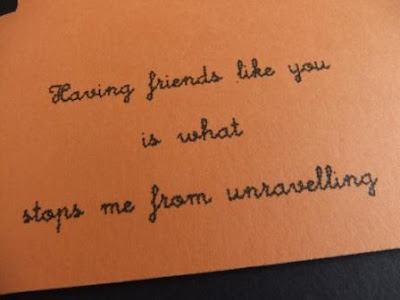 Having friends like you
is what
stops me from unravelling